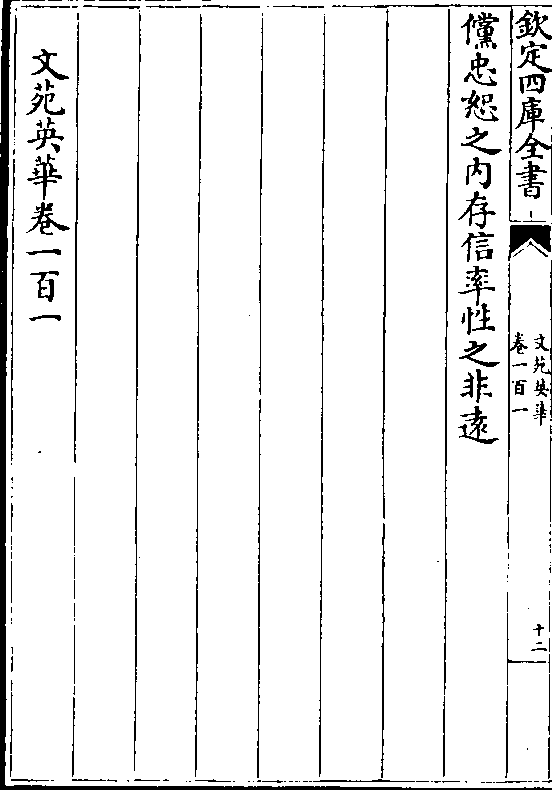 欽定四庫全書
文苑英華
卷一百一
十二
儻忠恕之内存信率性之非逺
文苑英華卷一百一